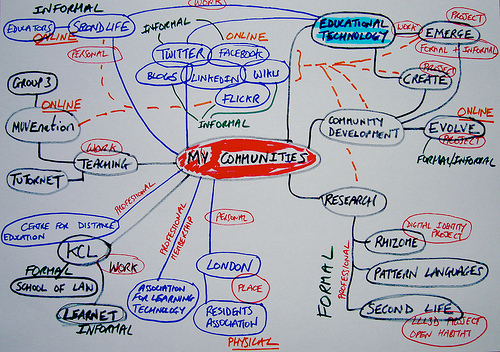 INFORMAL
EDUCATORS
SECOND LIFE
ONLINE
PERSONAL
GROUP 3
ONLINE
MUVEnation
WORK
TEACHING
TUTORNET
WORK
INFORMAL
ONLINE
TWITTER
FACEBOOK
BLOGS
LINKEDIN
WIKIS
FLICKR
INFORMAL
MY COMMUNITIES
EDUCATIONAL
TECHNOLOGY
WORK
PROJECT
EMERGE
FORMAL + INFORMAL
PROJECT
CREATE
COMMUNITY
DEVELOPMENT
ONLINE
EVOLVE
PROJECT
FORMAL/INFORMAL
RESEARCH
FORMAL
PROFESSIONAL
DIGITAL IDENTITY
PROJECT
RHIZOME
PATTERN LANGUAGES
SECOND LIFE
PROJECT
OPEN HABITAT
PROFESSIONAL
CENTRE FOR DISTANCE
EDUCATION
KCL
WORK
FORMAL
SCHOOL OF LAW
LEARNET
INFORMAL
PROFESSIONAL
MEMBERSHIP
ASSOCIATION
FOR LEARNING
TECHNOLOGY
PERSONAL
LONDON
PLACE
RESIDENTS
ASSOCIATION
PHYSICAL